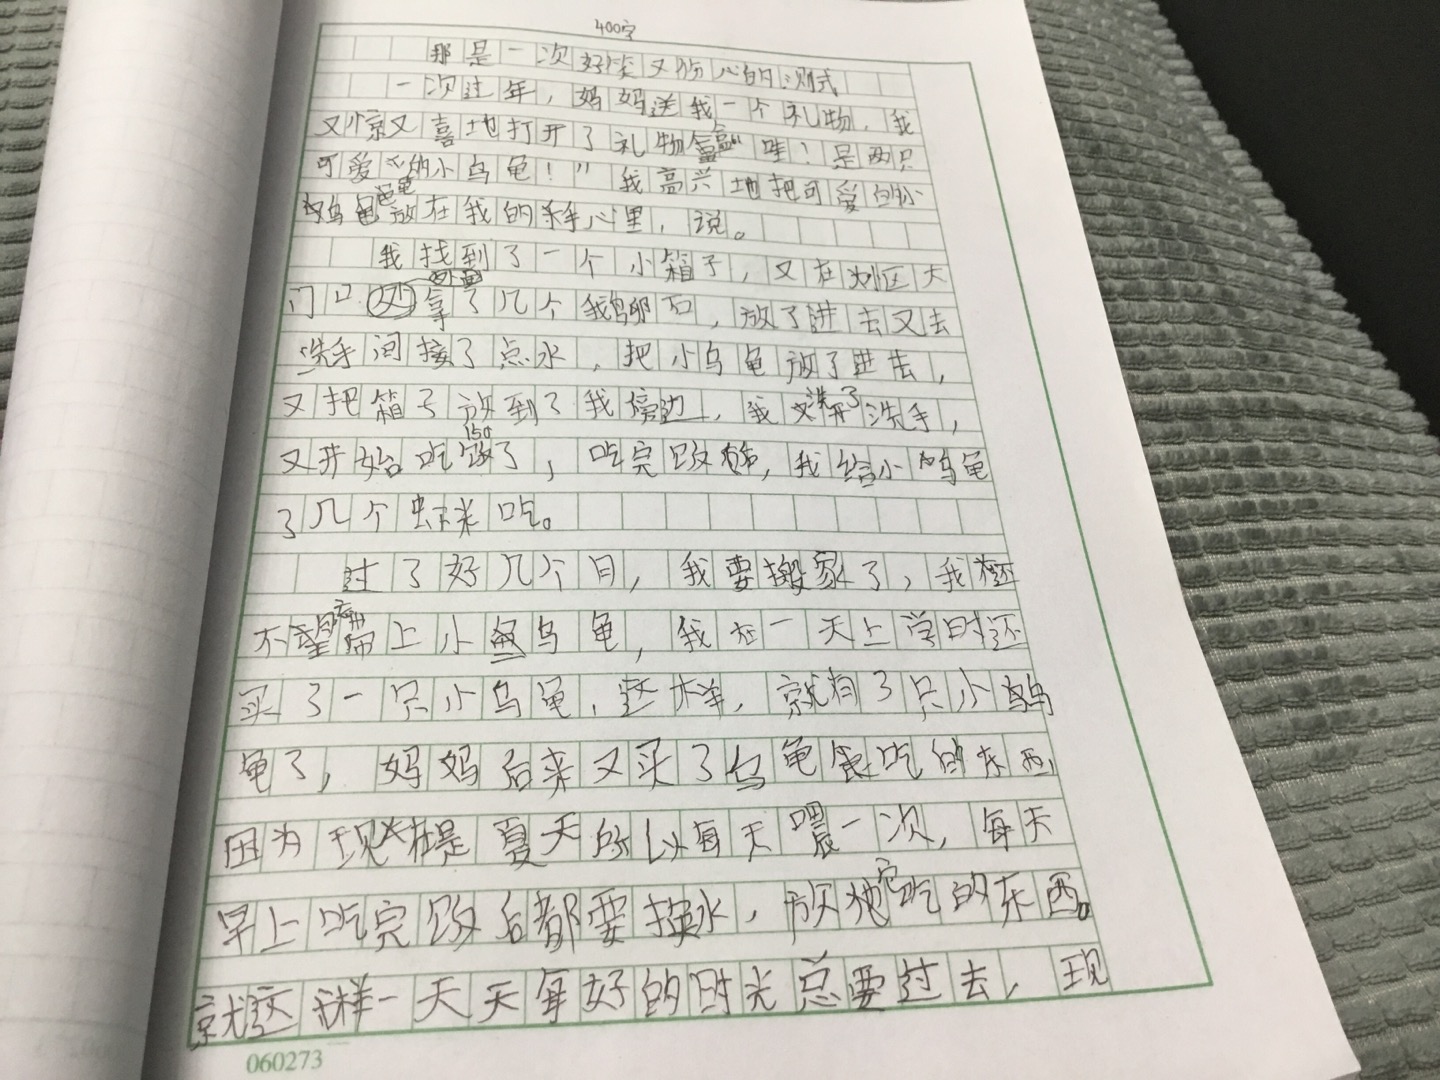 400字
那是一次好笑又伤心的测式
一次过年，妈妈送我一个礼物，我
又惊又喜地打开了礼物盒“哇！是两只
可爱的小乌龟！”我高兴地把可爱的小
乌龟放在我的手心里，说。
我找到了一个小箱子，又在小区大
门口又拿了几个鹅卵石，放了进去又去
洗手间接了点水，把小乌龟放了进去，
又把箱子放到了我傍边，我又洗了洗手，
150
又开始吃饭了，吃完饭后，我给小乌龟
了几个虾米吃。
过了好几个月，我要搬家了，我还
不忘带上小乌龟，我在一天上学时还
买了一只小乌龟，这样，就有了只小乌
龟了，妈妈后来又买了乌龟食吃的东西，
因为现在是夏天所以每天喂一次，每天
早上吃完饭后都要换水，放它吃的东西。
就这样一天天每好的时光总要过去，现
060273